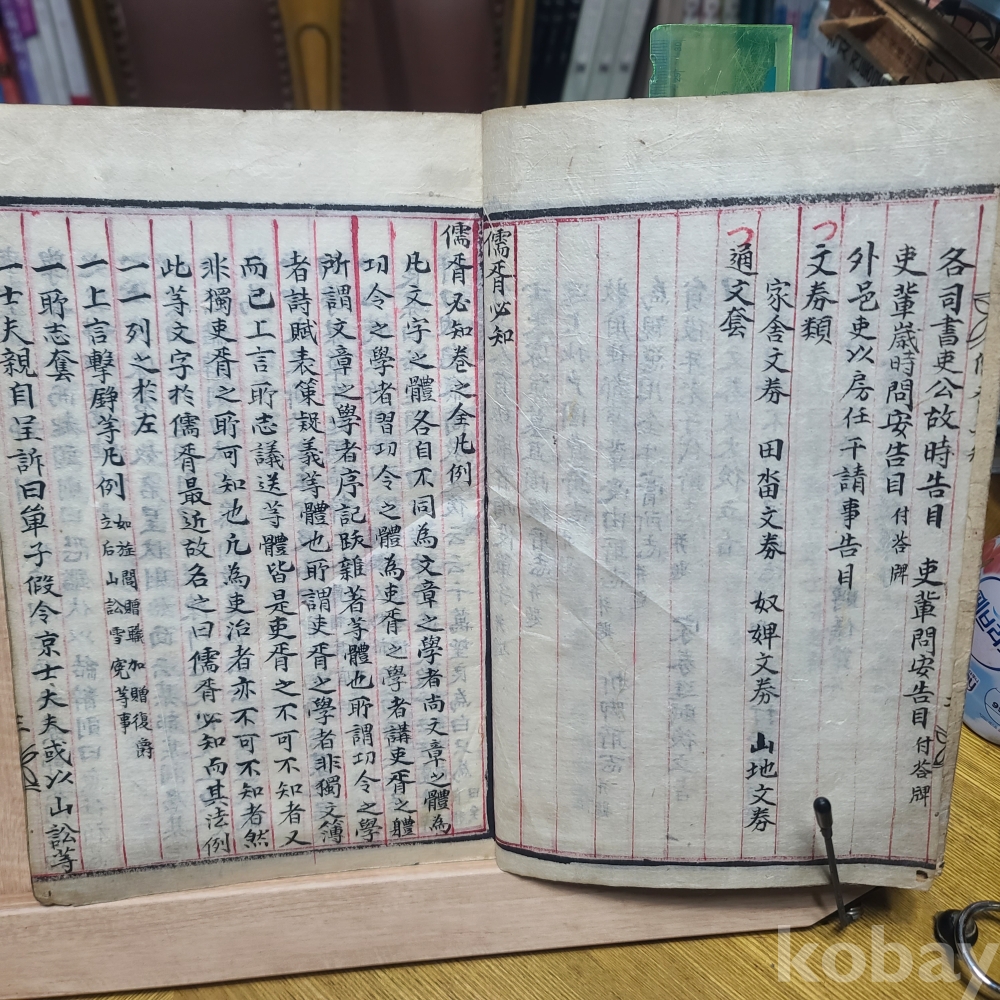 各司書吏公故時告目 吏輩問安告目 付答牌
吏輩歲時問安告目 付答牌
外邑吏以房任干請事告目
文券類
家舍文券 田畓文券 奴婢文券 山地文券
通文套
儒胥必知
儒胥必知卷之全凡例
凡文字之體各自不同為文章之學者尚文章之體為
功令之學者習功令之體為吏胥之學者講吏胥之體
所謂文章之學者序記跋雜著等體也所謂功令之學
者詩賦表策疑義等體也所謂吏胥之學者非獨文簿
而已上言所志議送等體皆是吏胥之不可不知者又
非獨吏胥之所可知也凡為吏治者亦不可不知者然
此等文字於儒胥最近故名之曰儒胥必知而其法例
一一列之於左
一上言擊錚等凡例 如旌閭贈職加贈復爵
立后山訟雪寃等事
一所志套
一士夫親自呈訴曰單子假令京士夫或以山訟等
kobay